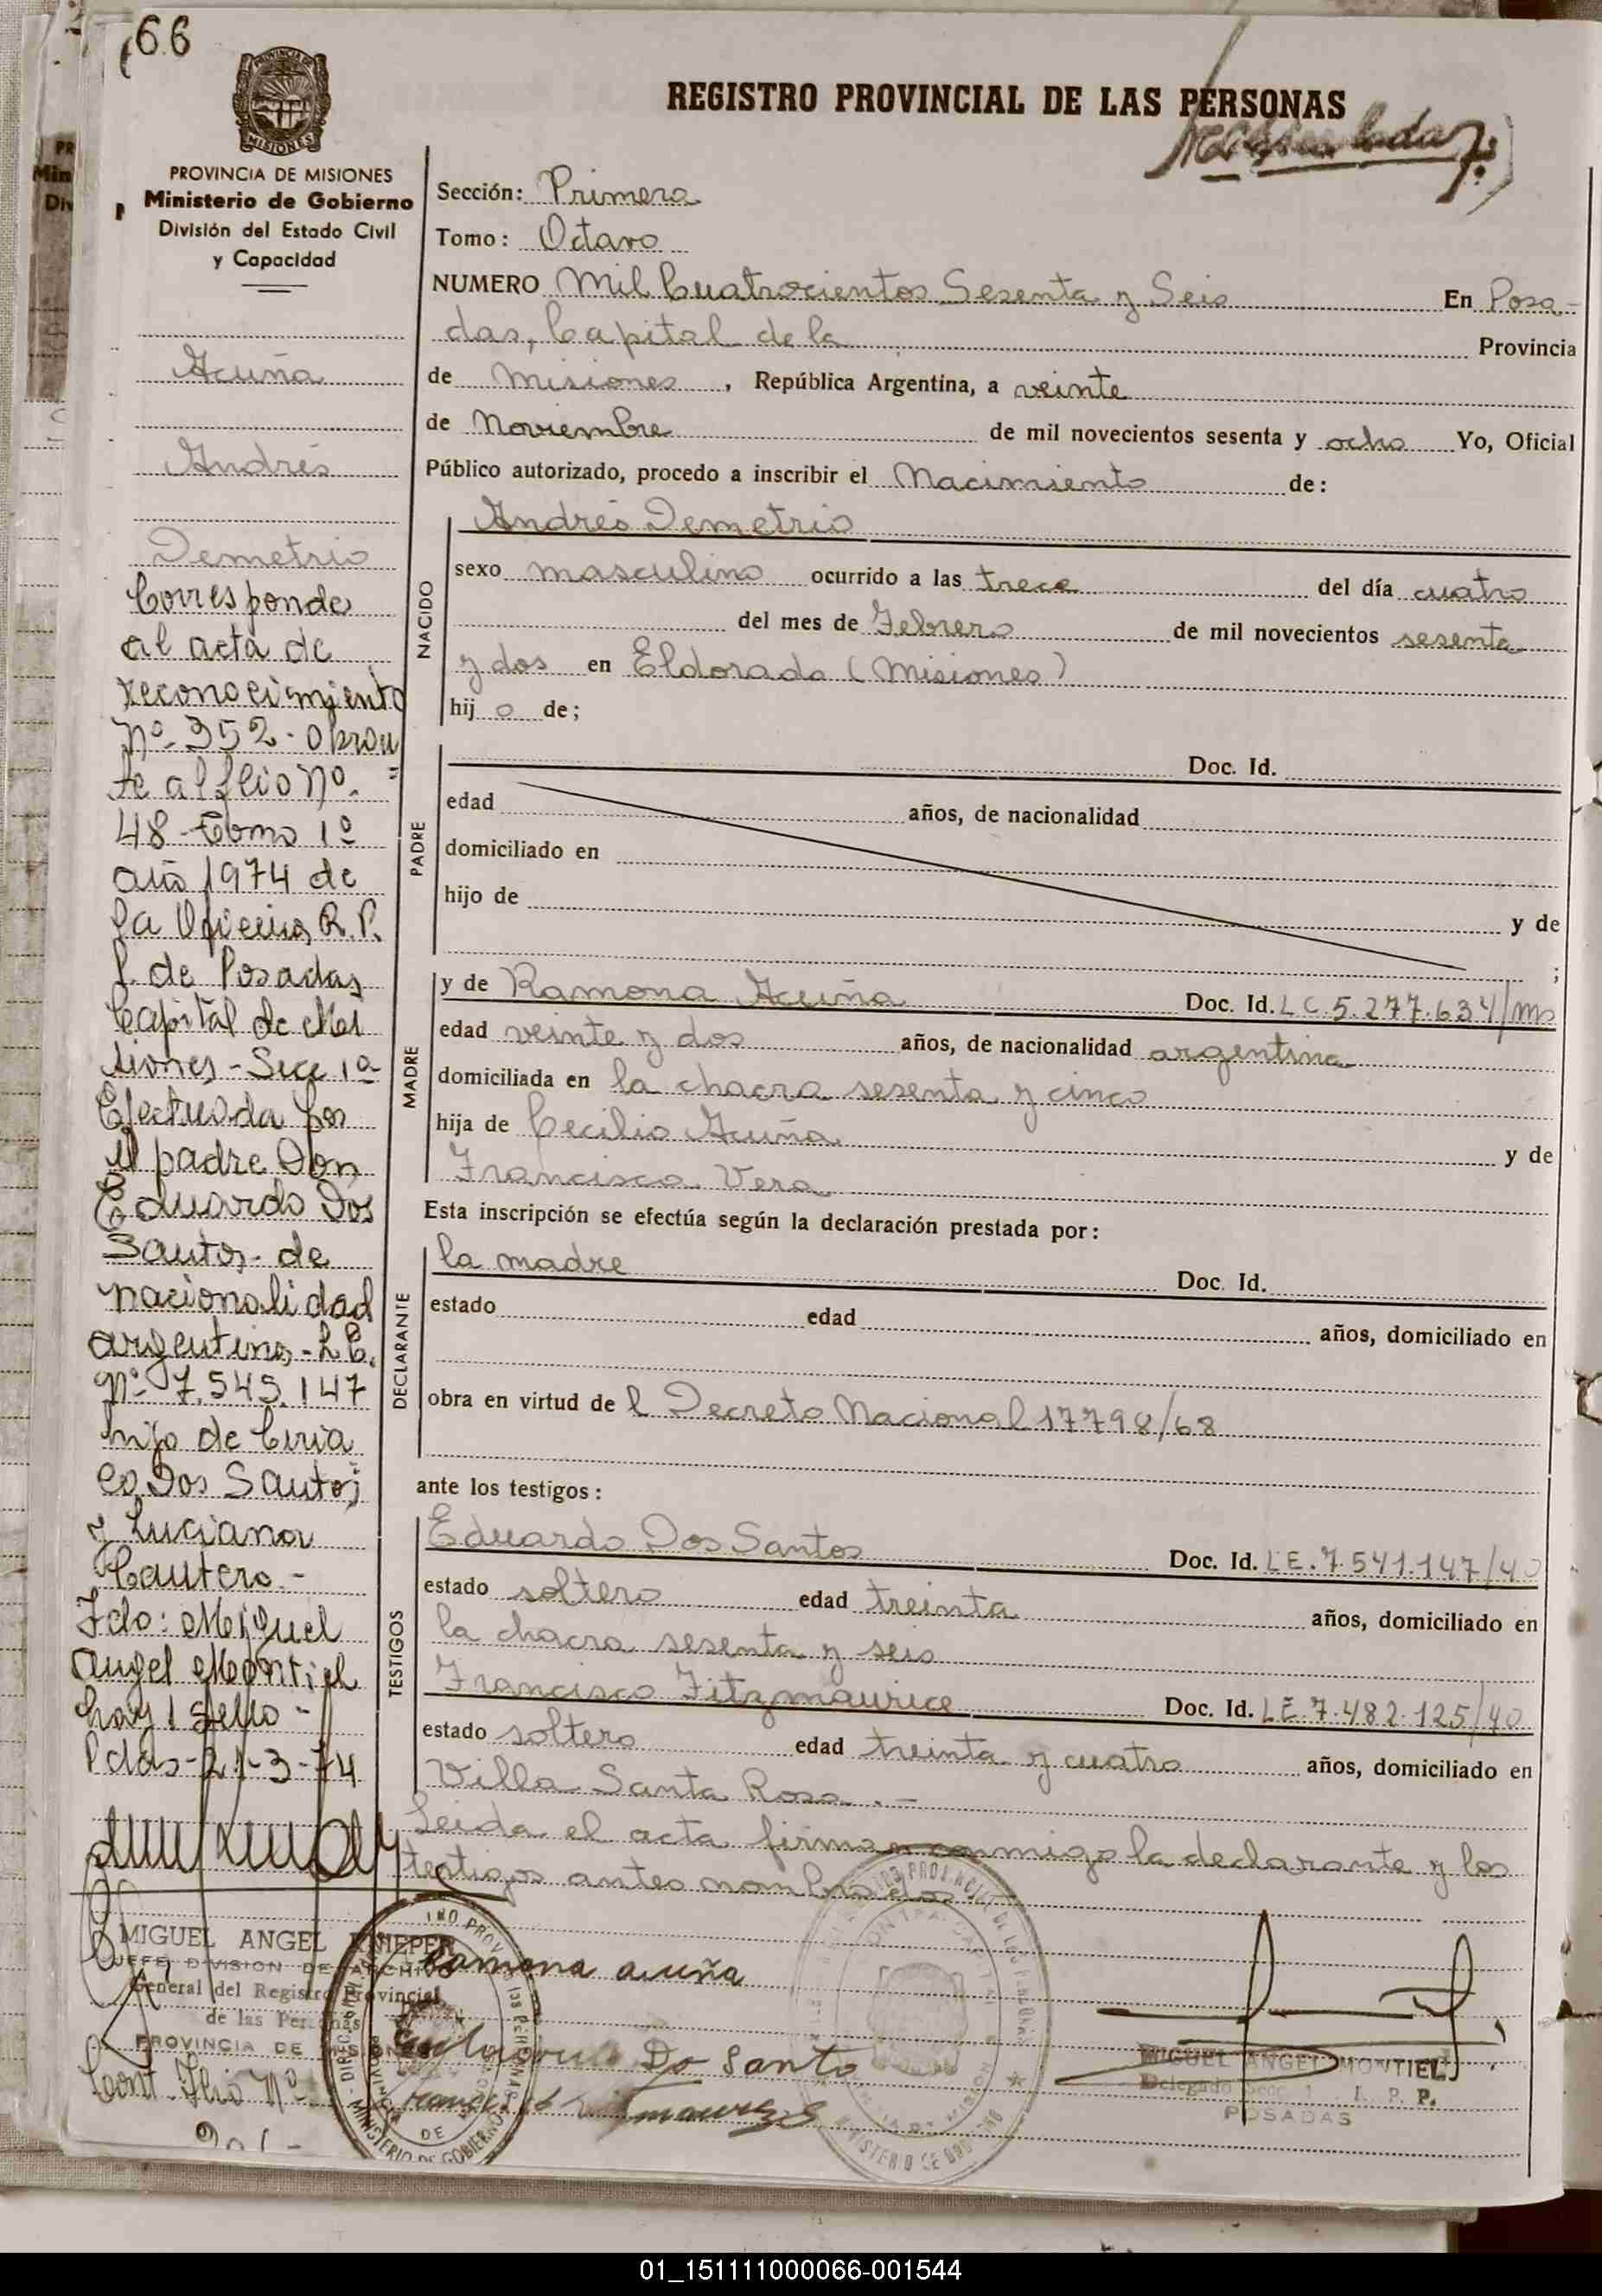 66
PROVINCIA DE MISIONES
Ministerio de Gobierno
División del Estado Civil
y Capacidad
Acuña
Andrés
Demetrio
Corresponde
al acta de
reconocimiento
Nº 352 - obran
te al folio Nº
48 - Tomo 1º
año 1974 de
la Oficina R. P.
P. de Posadas
Capital de Mi
siones - Secc 1ª
Efectuada por
el padre Don
Eduardo Dos
Santos - de
nacionalidad
argentina - L E.
Nº 7.545.147
hijo de Ciria
co Dos Santos
y Luciana
Cautero.-
Fdo: Miguel
Angel Montiel
hay 1 sello -
Pdas - 21-3-74
MIGUEL ANGEL
JEFE DIVISION DE ARCHIVO
General del Registro Provincial
de las Personas
PROVINCIA DE MISIONES
Cont. Flio Nº
REGISTRO PROVINCIAL DE LAS PERSONAS
Sección: Primera
Tomo: Octavo
NUMERO Mil Cuatrocientos Sesenta y Seis En Posa-
das, Capital de la Provincia
de Misiones, República Argentina, a veinte
de Noviembre de mil novecientos sesenta y ocho Yo, Oficial
Público autorizado, procedo a inscribir el Nacimiento de:
NACIDO
Andrés Demetrio
sexo masculino ocurrido a las trece del día cuatro
del mes de Febrero de mil novecientos sesenta
y dos en Eldorado (Misiones)
hij o de;
PADRE
Doc. Id.
edad años, de nacionalidad
domiciliado en
hijo de y de
;
MADRE
y de Ramona Acuña Doc. Id. L C. 5.277.634/ms
edad veinte y dos años, de nacionalidad argentina
domiciliada en la chacra sesenta y cinco
hija de Cecilio Acuña y de
Francisca Vera
Esta inscripción se efectúa según la declaración prestada por:
DECLARANTE
la madre Doc. Id.
estado edad años, domiciliado en
obra en virtud de l Decreto Nacional 17798/68
ante los testigos:
TESTIGOS
Eduardo Dos Santos Doc. Id. L E. 7.541.147/40
estado soltero edad treinta años, domiciliado en
la chacra sesenta y seis
Francisco Fitzmaurice Doc. Id. L E. 7.482.125/40
estado soltero edad treinta y cuatro años, domiciliado en
Villa Santa Rosa.-
Leida el acta firman conmigo la declarante y los
testigos antes nombrados
Ramona acuña
Do Santo
MIGUEL ANGEL MONTIEL
Delegado Secc. 1 R. P. P.
POSADAS
01_151111000066-001544